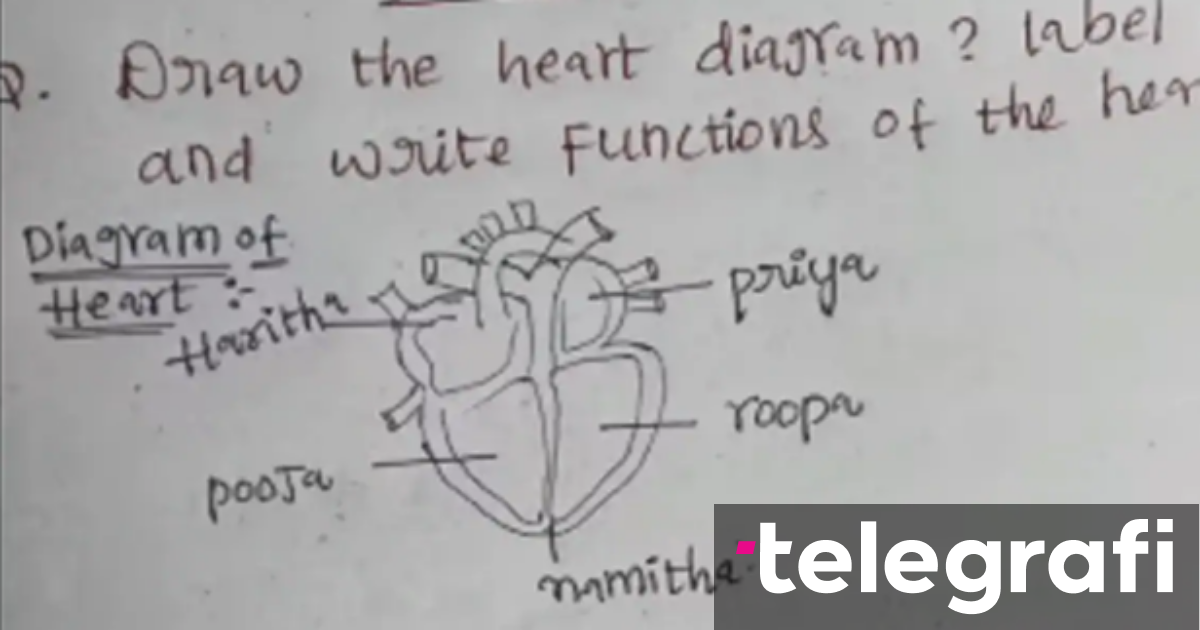 Q. Draw the heart diagram? label
and write Functions of the hear
Diagram of
Heart :-
Haritha
priya
roopa
pooja
namitha
telegrafi